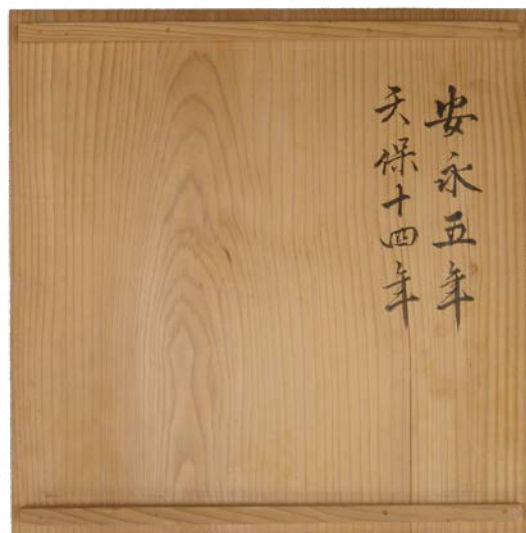 安永五年
天保十四年